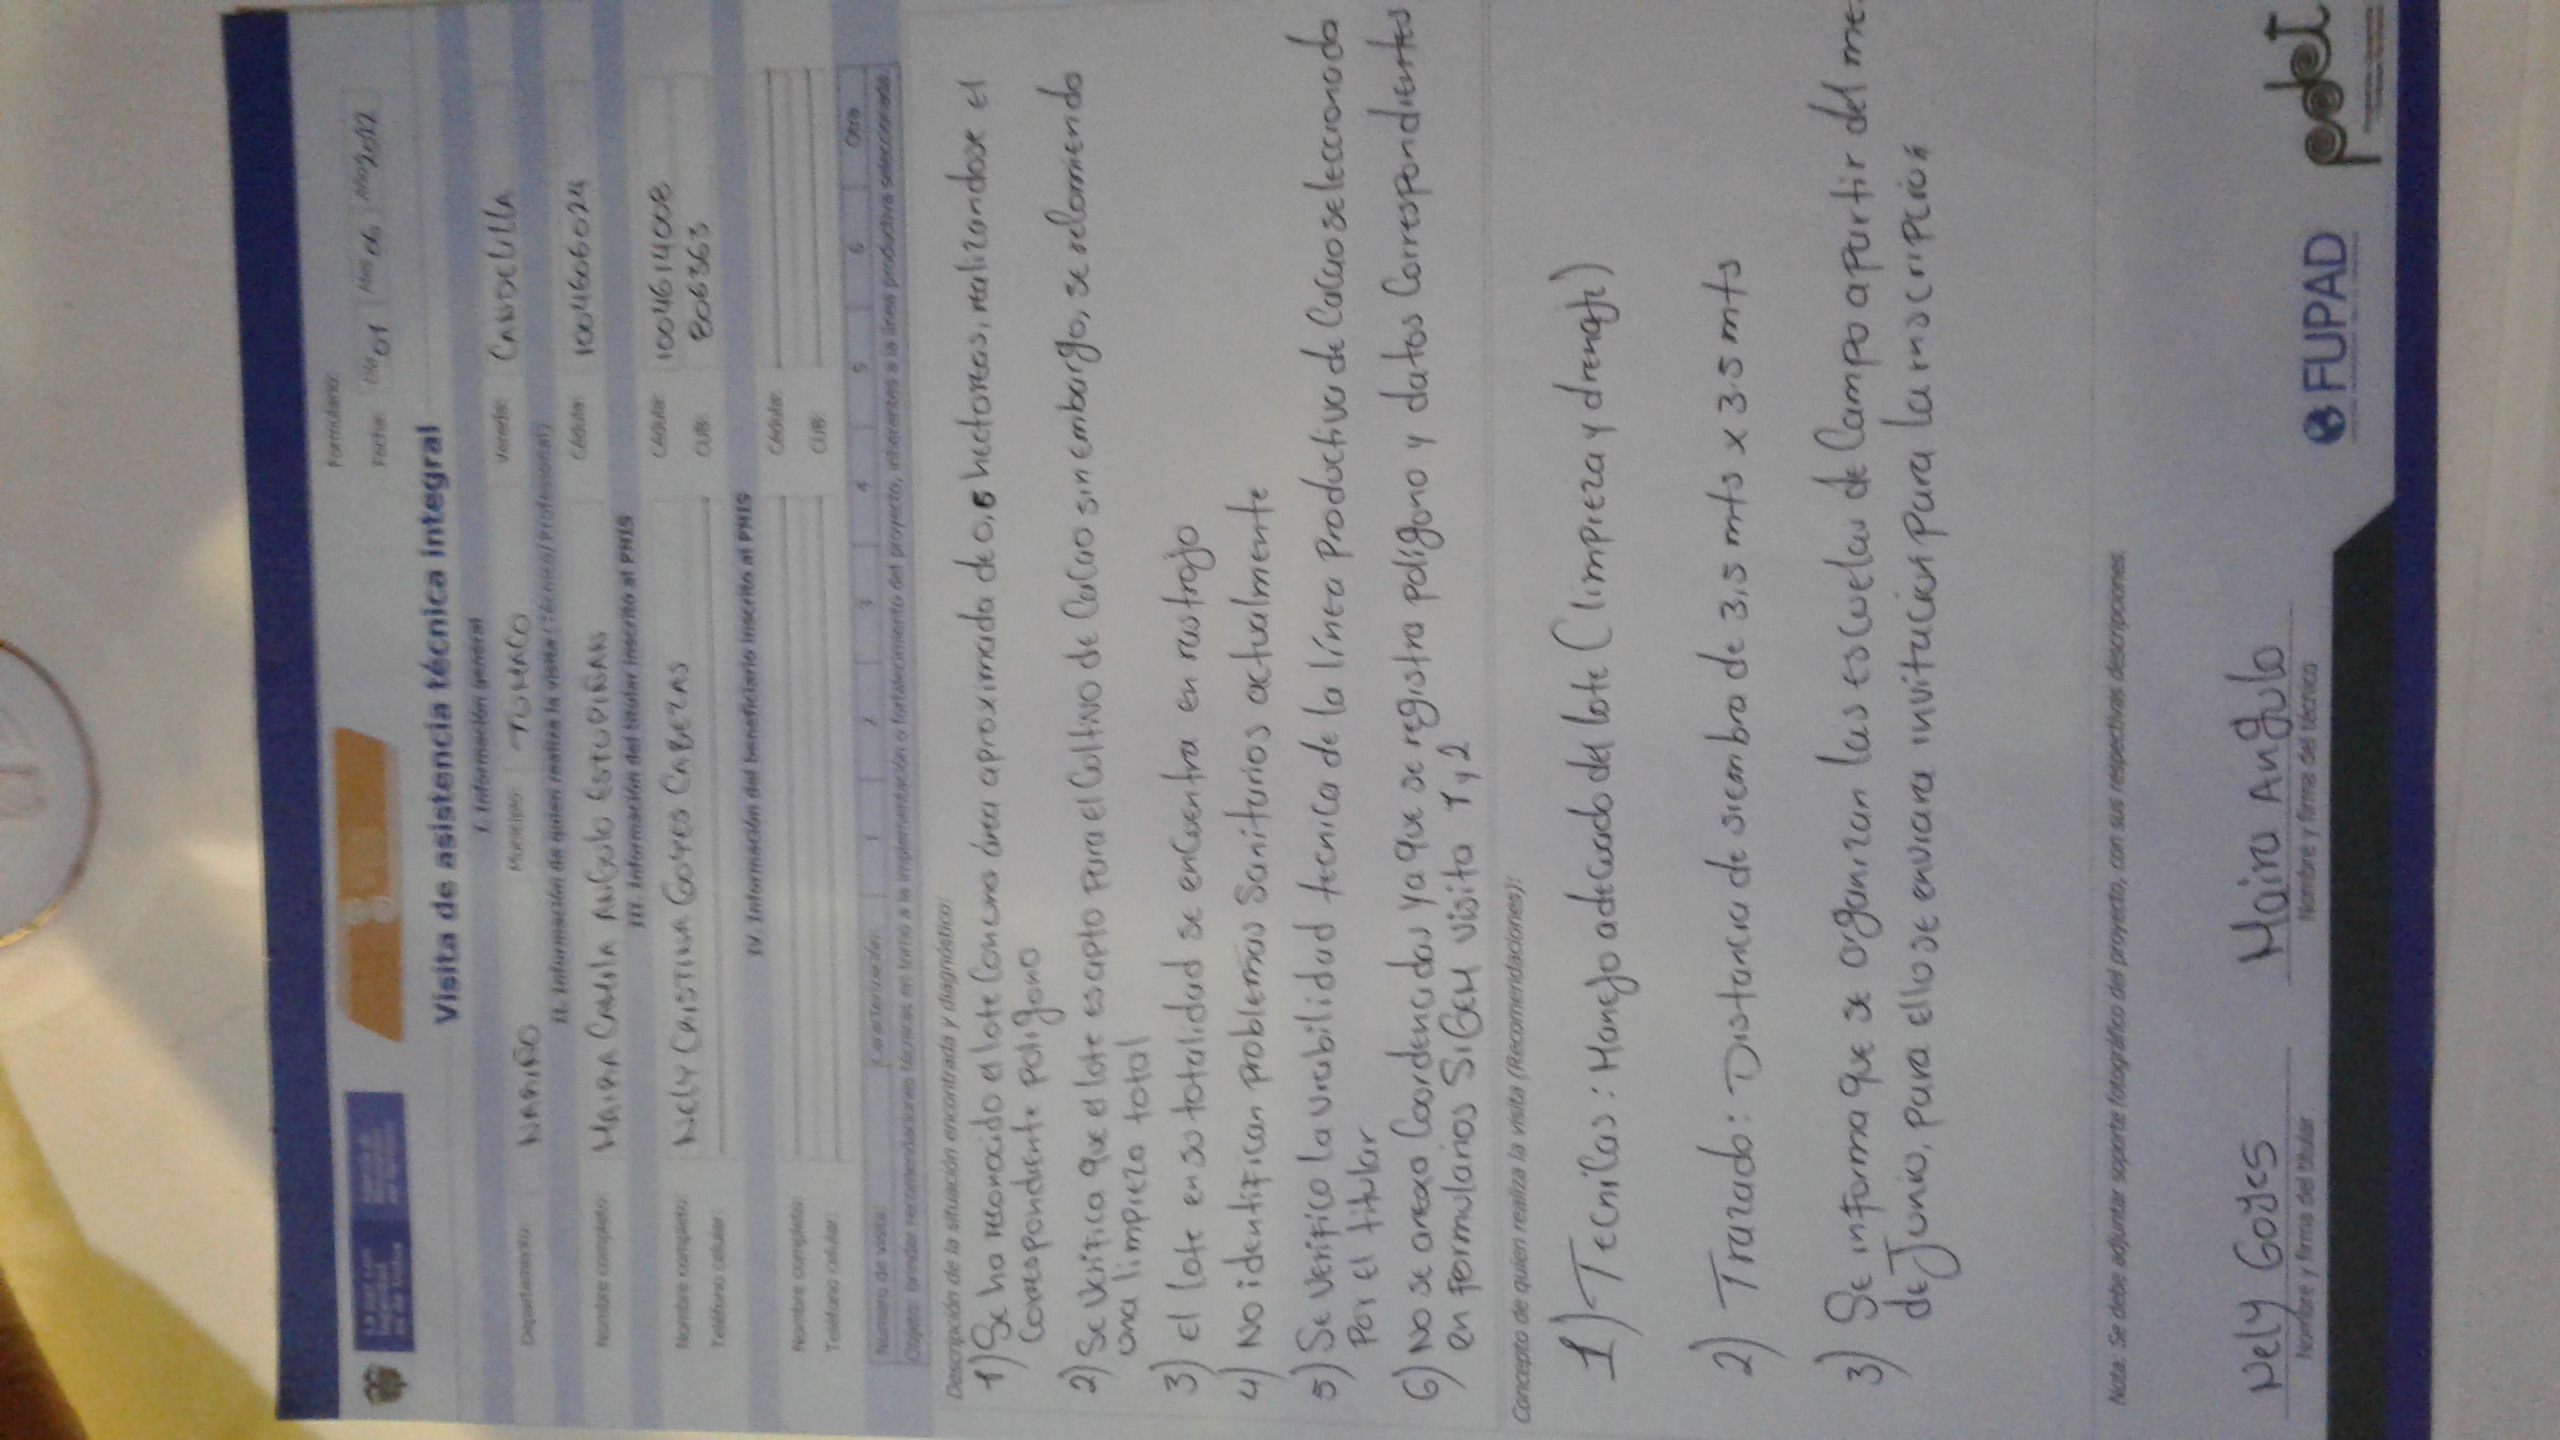 Formulario:
Fecha: Día 01 Mes 06 Año 2022
Visita de asistencia técnica integral
I. Información general
Departamento: NARIÑO Municipio: TUMACO Vereda: CANDELILLA
II. Información de quien realiza la visita (Técnico/Profesional)
Nombre completo: MAIRA CAMILA ANGULO ESTUPIÑAN Cédula: 1004606024
III. Información del titular inscrito al PNIS
Nombre completo: NELY CRISTINA GOYES CABEZAS Cédula: 1004614008
Teléfono celular: CUB: 806363
IV. Información del beneficiario inscrito al PNIS
Nombre completo: Cédula:
Teléfono celular: CUB:
Número de visita: Caracterización: 1 2 3 4 5 6 Otra
Objeto: Brindar recomendaciones técnicas en torno a la implementación o fortalecimiento del proyecto, inherentes a la línea productiva seleccionada.
Descripción de la situación encontrada y diagnóstico:
1) Se ha reconocido el lote con una área aproximada de 0,5 hectareas, realizandose el
correspondiente poligono
2) Se verifica que el lote es apto para el Coltino de Cacao sin embargo, se relomienda
una limpieza total
3) El lote en su totalidad se encuentra en rastrojo
4) No identifican problemas Sanitarios actualmente
5) Se verifico la viabilidad tecnica de la línea productiva de Cacao seleccionada
por el titular
6) No se anexa Coordenadas ya que se registra polígono y datos Correspondientes
en formularios SIGEM visita 1 y 2
Concepto de quien realiza la visita (Recomendaciones):
1) Tecnicas: Manejo adecuado del lote (limpieza y drenaje)
2) Trazado: Distancia de siembra de 3,5 mts x 3.5 mts
3) Se informa que se organizan las escuelas de Campo apartir del mes
de Junio, para ello se enviara invitacion para la inscripción
Nota: Se debe adjuntar soporte fotográfico del proyecto, con sus respectivas descripciones.
Nely Goyes Maira Angulo
Nombre y firma del titular Nombre y firma del técnico
FUPAD pdet